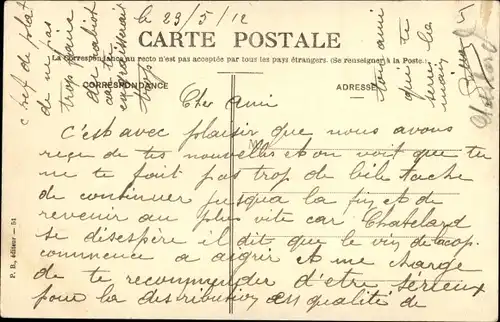 le 23/5/12
CARTE POSTALE
La correspondance au recto n'est pas acceptée par tous les pays étrangers. (Se renseigner à la Poste.)
CORRESPONDANCE
ADRESSE
Cher Ami
C'est avec plaisir que nous avons
reçu de tes nouvelles et on voit que tu
ne te fait pas trop de bile tache
de continuer jusqua la fin et de
revenir au plus vite car Chatelard
se désespère il dit que le vin
commence a aigrir et me charge
de te recommander d'etre sérieux
pour la distribution en qualité de
chef de plat
de ne pas
trop faire
du rabiot
car te
engraisserait
trop
ton ami
qui te
serre la
main
P. B., éditeur - 51